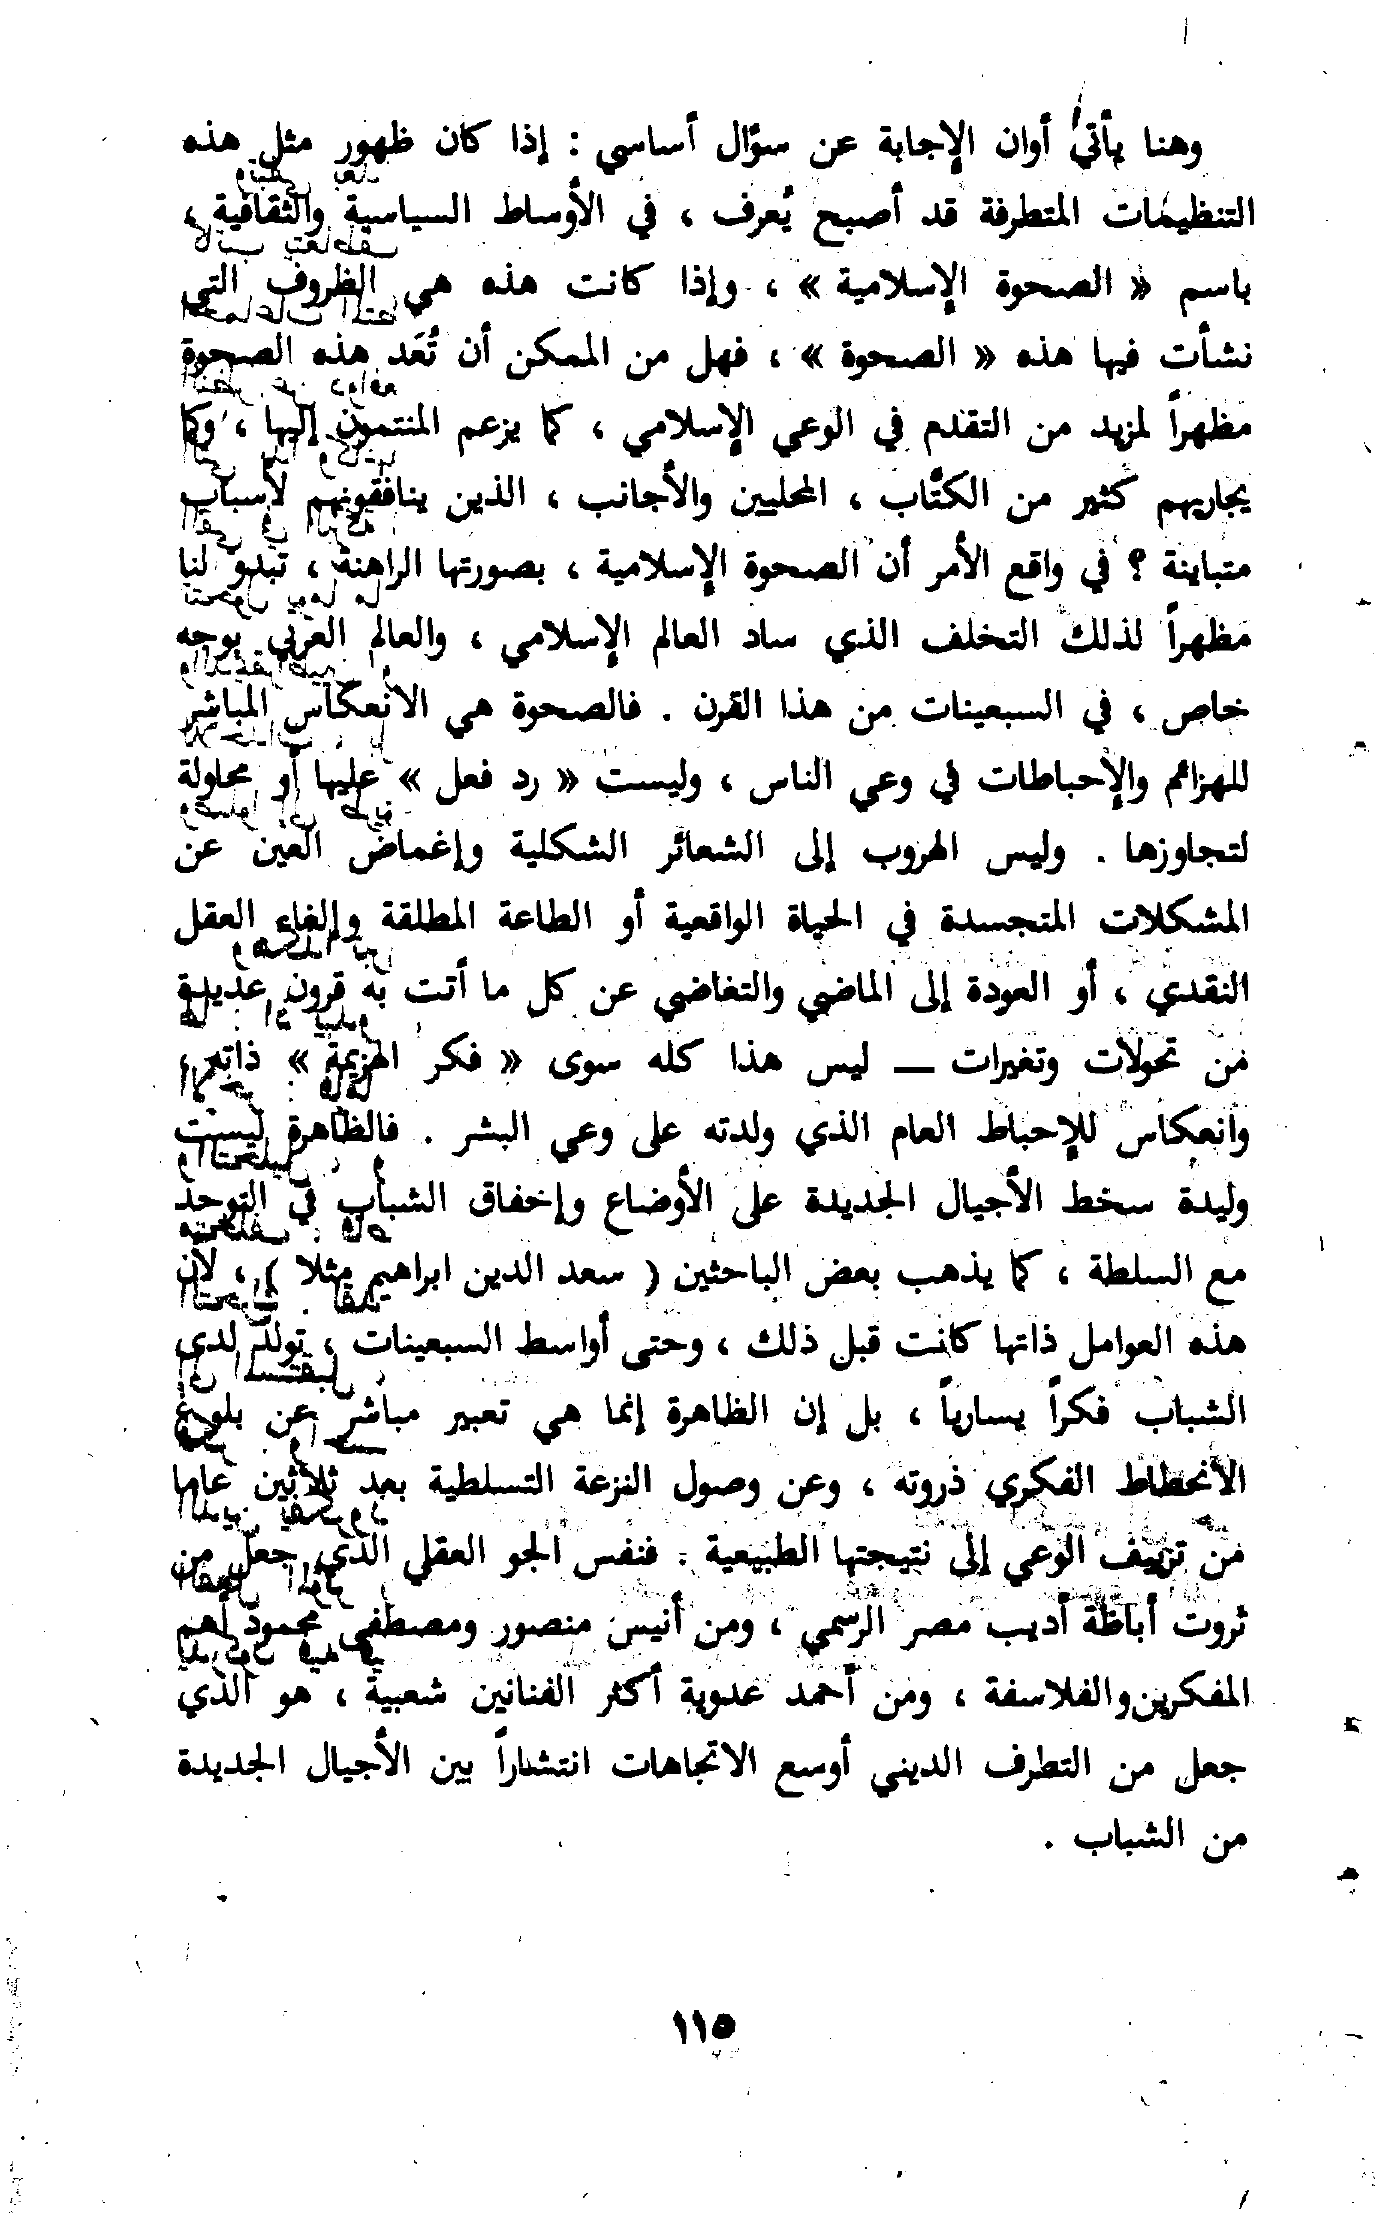 وهنا يأتي أوان الإجابة عن سؤال أساسي : إذا كان ظهور مثل هذه
التنظيمات المتطرفة قد أصبح يُعرف ، في الأوساط السياسية والثقافية ،
باسم « الصحوة الإسلامية » ، وإذا كانت هذه هي الظروف التي
نشأت فيها هذه « الصحوة » ، فهل من الممكن أن تُعَد هذه الصحوة
مظهراً لمزيد من التقدم في الوعي الإسلامي ، كما يزعم المنتمون إليها ، وكما
يجاريهم كثير من الكتّاب ، المحليين والأجانب ، الذين ينافقونهم لأسباب
متباينة ؟ في واقع الأمر أن الصحوة الإسلامية ، بصورتها الراهنة ، تبدو لنا
مظهراً لذلك التخلف الذي ساد العالم الإسلامي ، والعالم العربي بوجه
خاص ، في السبعينات من هذا القرن . فالصحوة هي الانعكاس المباشر
للهزائم والإحباطات في وعي الناس ، وليست « رد فعل » عليها أو محاولة
لتجاوزها . وليس الهروب إلى الشعائر الشكلية وإغماض العين عن
المشكلات المتجسدة في الحياة الواقعية أو الطاعة المطلقة وإلغاء العقل
النقدي ، أو العودة إلى الماضي والتغاضي عن كل ما أتت به قرون عديدة
من تحولات وتغيرات — ليس هذا كله سوى « فكر الهزيمة » ذاته ،
وانعكاس للإحباط العام الذي ولدته على وعي البشر . فالظاهرة ليست
وليدة سخط الأجيال الجديدة على الأوضاع وإخفاق الشباب في التوحد
مع السلطة ، كما يذهب بعض الباحثين ( سعد الدين ابراهيم مثلا ) ، لأن
هذه العوامل ذاتها كانت قبل ذلك ، وحتى أواسط السبعينات ، تولد لدى
الشباب فكراً يسارياً ، بل إن الظاهرة إنما هي تعبير مباشر عن بلوغ
الانحطاط الفكري ذروته ، وعن وصول النزعة التسلطية بعد ثلاثين عاما
من تزييف الوعي إلى نتيجتها الطبيعية . فنفس الجو العقلي الذي جعل من
ثروت أباظة أديب مصر الرسمي ، ومن أنيس منصور ومصطفى محمود أهم
المفكرين والفلاسفة ، ومن أحمد عدوية أكثر الفنانين شعبية ، هو الذي
جعل من التطرف الديني أوسع الاتجاهات انتشاراً بين الأجيال الجديدة
من الشباب .
١١٥